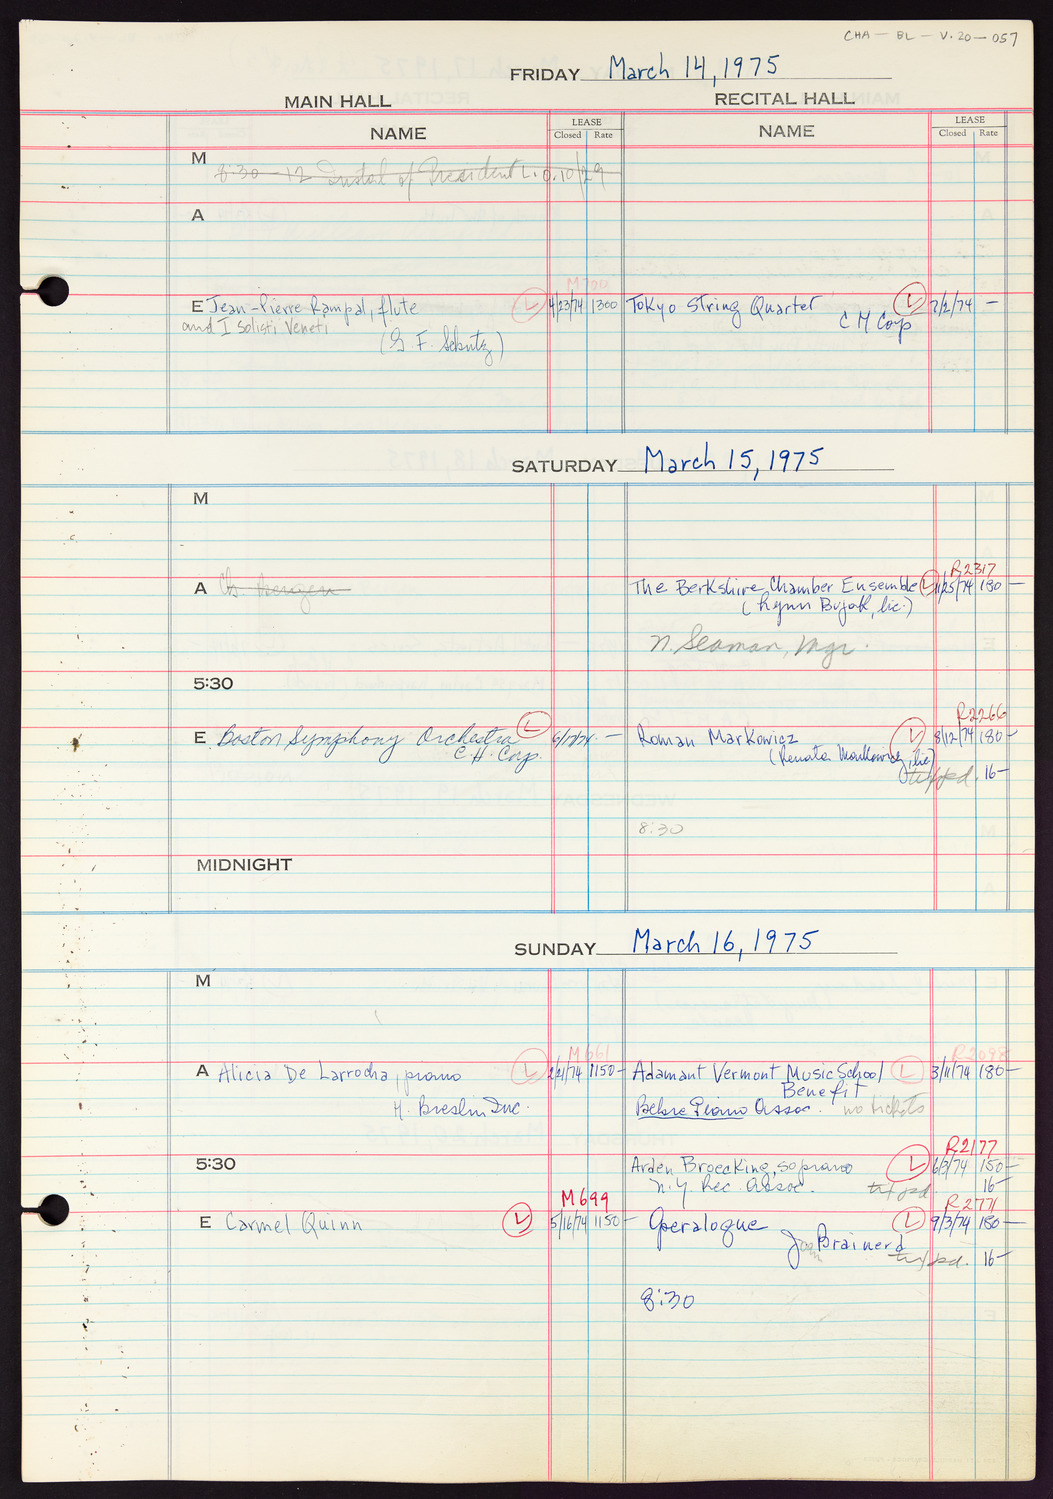 CHA - BL - V. 20 - 057
FRIDAY March 14, 1975
MAIN HALL
RECITAL HALL
NAME
LEASE
Closed Rate
NAME
LEASE
Closed Rate
M
8:30 - 12 Instal of President L.O. 10/29
A
M700
E Jean-Pierre Rampal, flute L 4/23/74 1300
and I Solisti Veneti
(G. F. Schutz)
Tokyo String Quartet L 7/2/74 —
C M Corp
SATURDAY March 15, 1975
M
A
R2317
The Berkshire Chamber Ensemble L 11/25/74 180 —
(Lynn Bujak, lic.)
N. Seaman, Mgr.
5:30
E Boston Symphony Orchestra L 6/17/74 —
C. H. Corp.
R2266
Roman Markowicz L 8/12/74 180 —
(Renata Markowicz, lic)
16 —
8:30
MIDNIGHT
SUNDAY March 16, 1975
M
M661
A Alicia De Larrocha, piano L 2/21/74 1150 —
H. Breslin Inc.
R2098
Adamant Vermont Music School L 3/11/74 180 —
Benefit
Piano Assoc. no tickets
5:30
R2177
Arden Broecking, soprano L 6/3/74 150 —
N. Y. Rec. Assoc. pd 16 —
M699
E Carmel Quinn L 5/16/74 1150 —
R2771
Operalogue L 9/3/74 180 —
Joan Brainerd
pd. 16 —
8:30